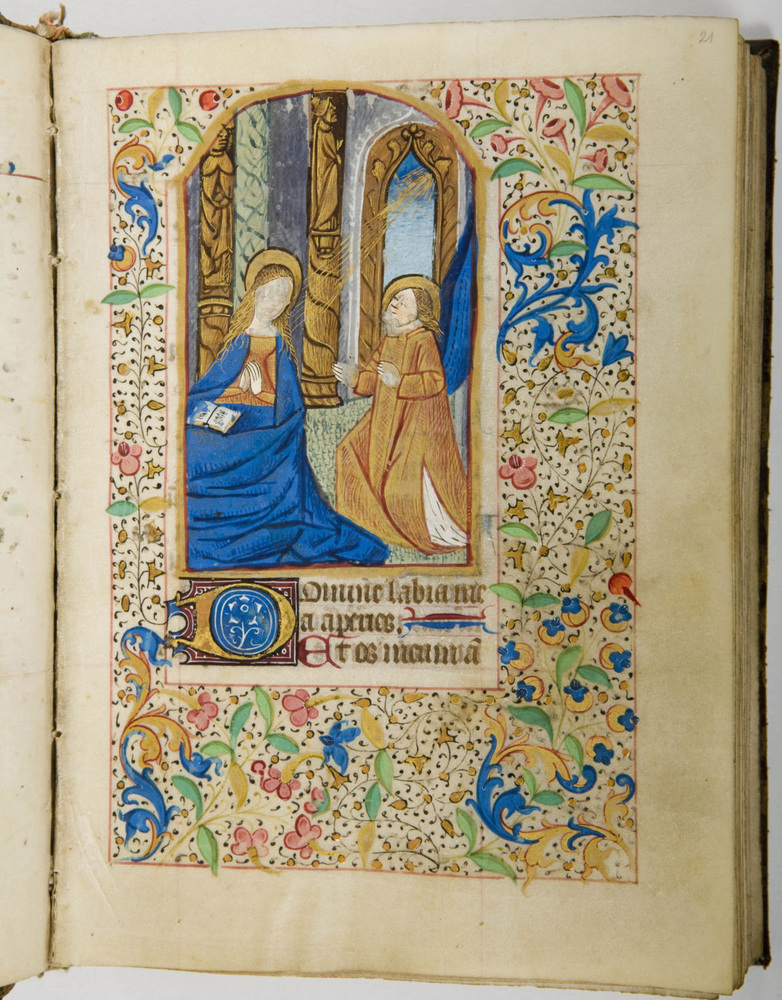 21
Domine labia me
a aperies.
Et os meum āā